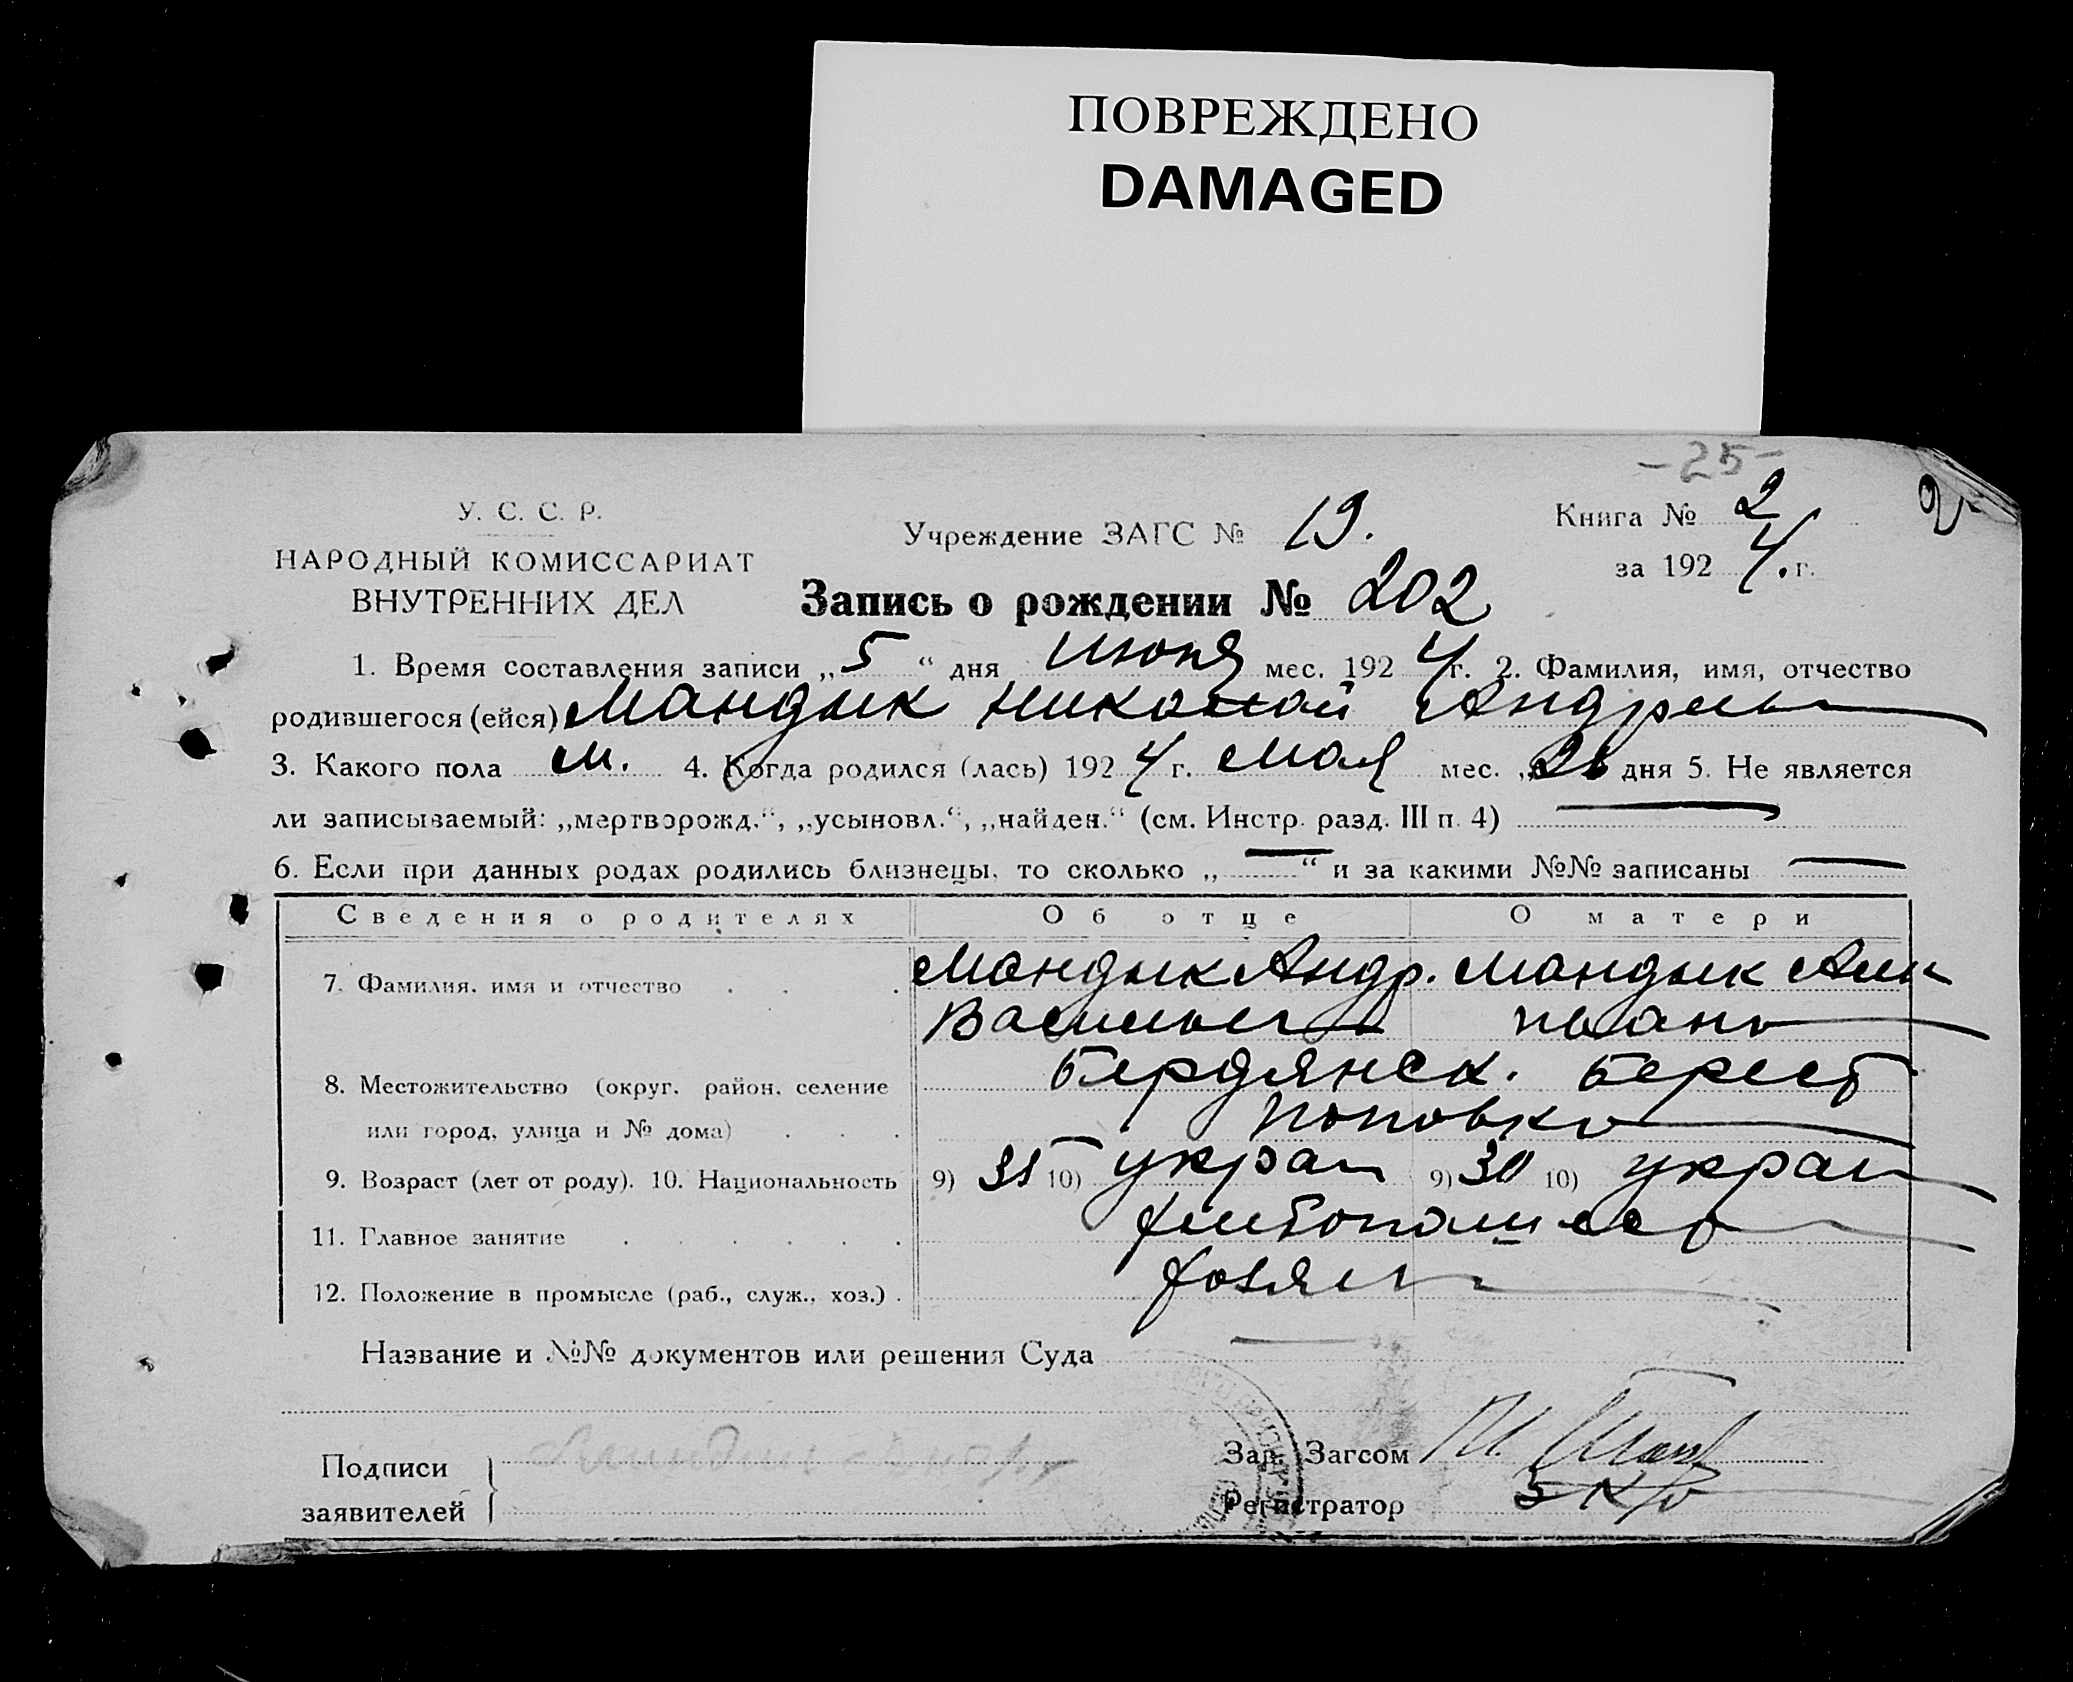 ПОВРЕЖДЕНО
DAMAGED
-25-
У. С. С. Р.
НАРОДНЫЙ КОМИССАРИАТ
ВНУТРЕННИХ ДЕЛ
Учреждение ЗАГС № 19.
Книга № 2
за 1924. г.
Запись о рождении № 202
1. Время составления записи „5“ дня июня мес. 1924 г. 2. Фамилия, имя, отчество
родившегося (ейся) Мандык Николай Андреев
3. Какого пола м. 4. Когда родился (лась) 1924 г. мая мес. „26 дня 5. Не является
ли записываемый: „мертворожд.“, „усыновл.“, „найден.“ (см. Инстр. разд. III п. 4) —
6. Если при данных родах родились близнецы, то сколько „—“ и за какими №№ записаны —
Сведения о родителях Об отце О матери
7. Фамилия, имя и отчество . . . Мандык Андр. Мандык
Васильев
8. Местожительство (округ, район, селение Бердянск. Берест
или город, улица и № дома) . . . Поповка
9. Возраст (лет от роду). 10. Национальность 9) 35 10) украин 9) 30 10) украин
11. Главное занятие . . . . . . хлебопашество
12. Положение в промысле (раб., служ., хоз.) . хозяин
Название и №№ документов или решения Суда —
Подписи
заявителей
Зав. Загсом
Регистратор